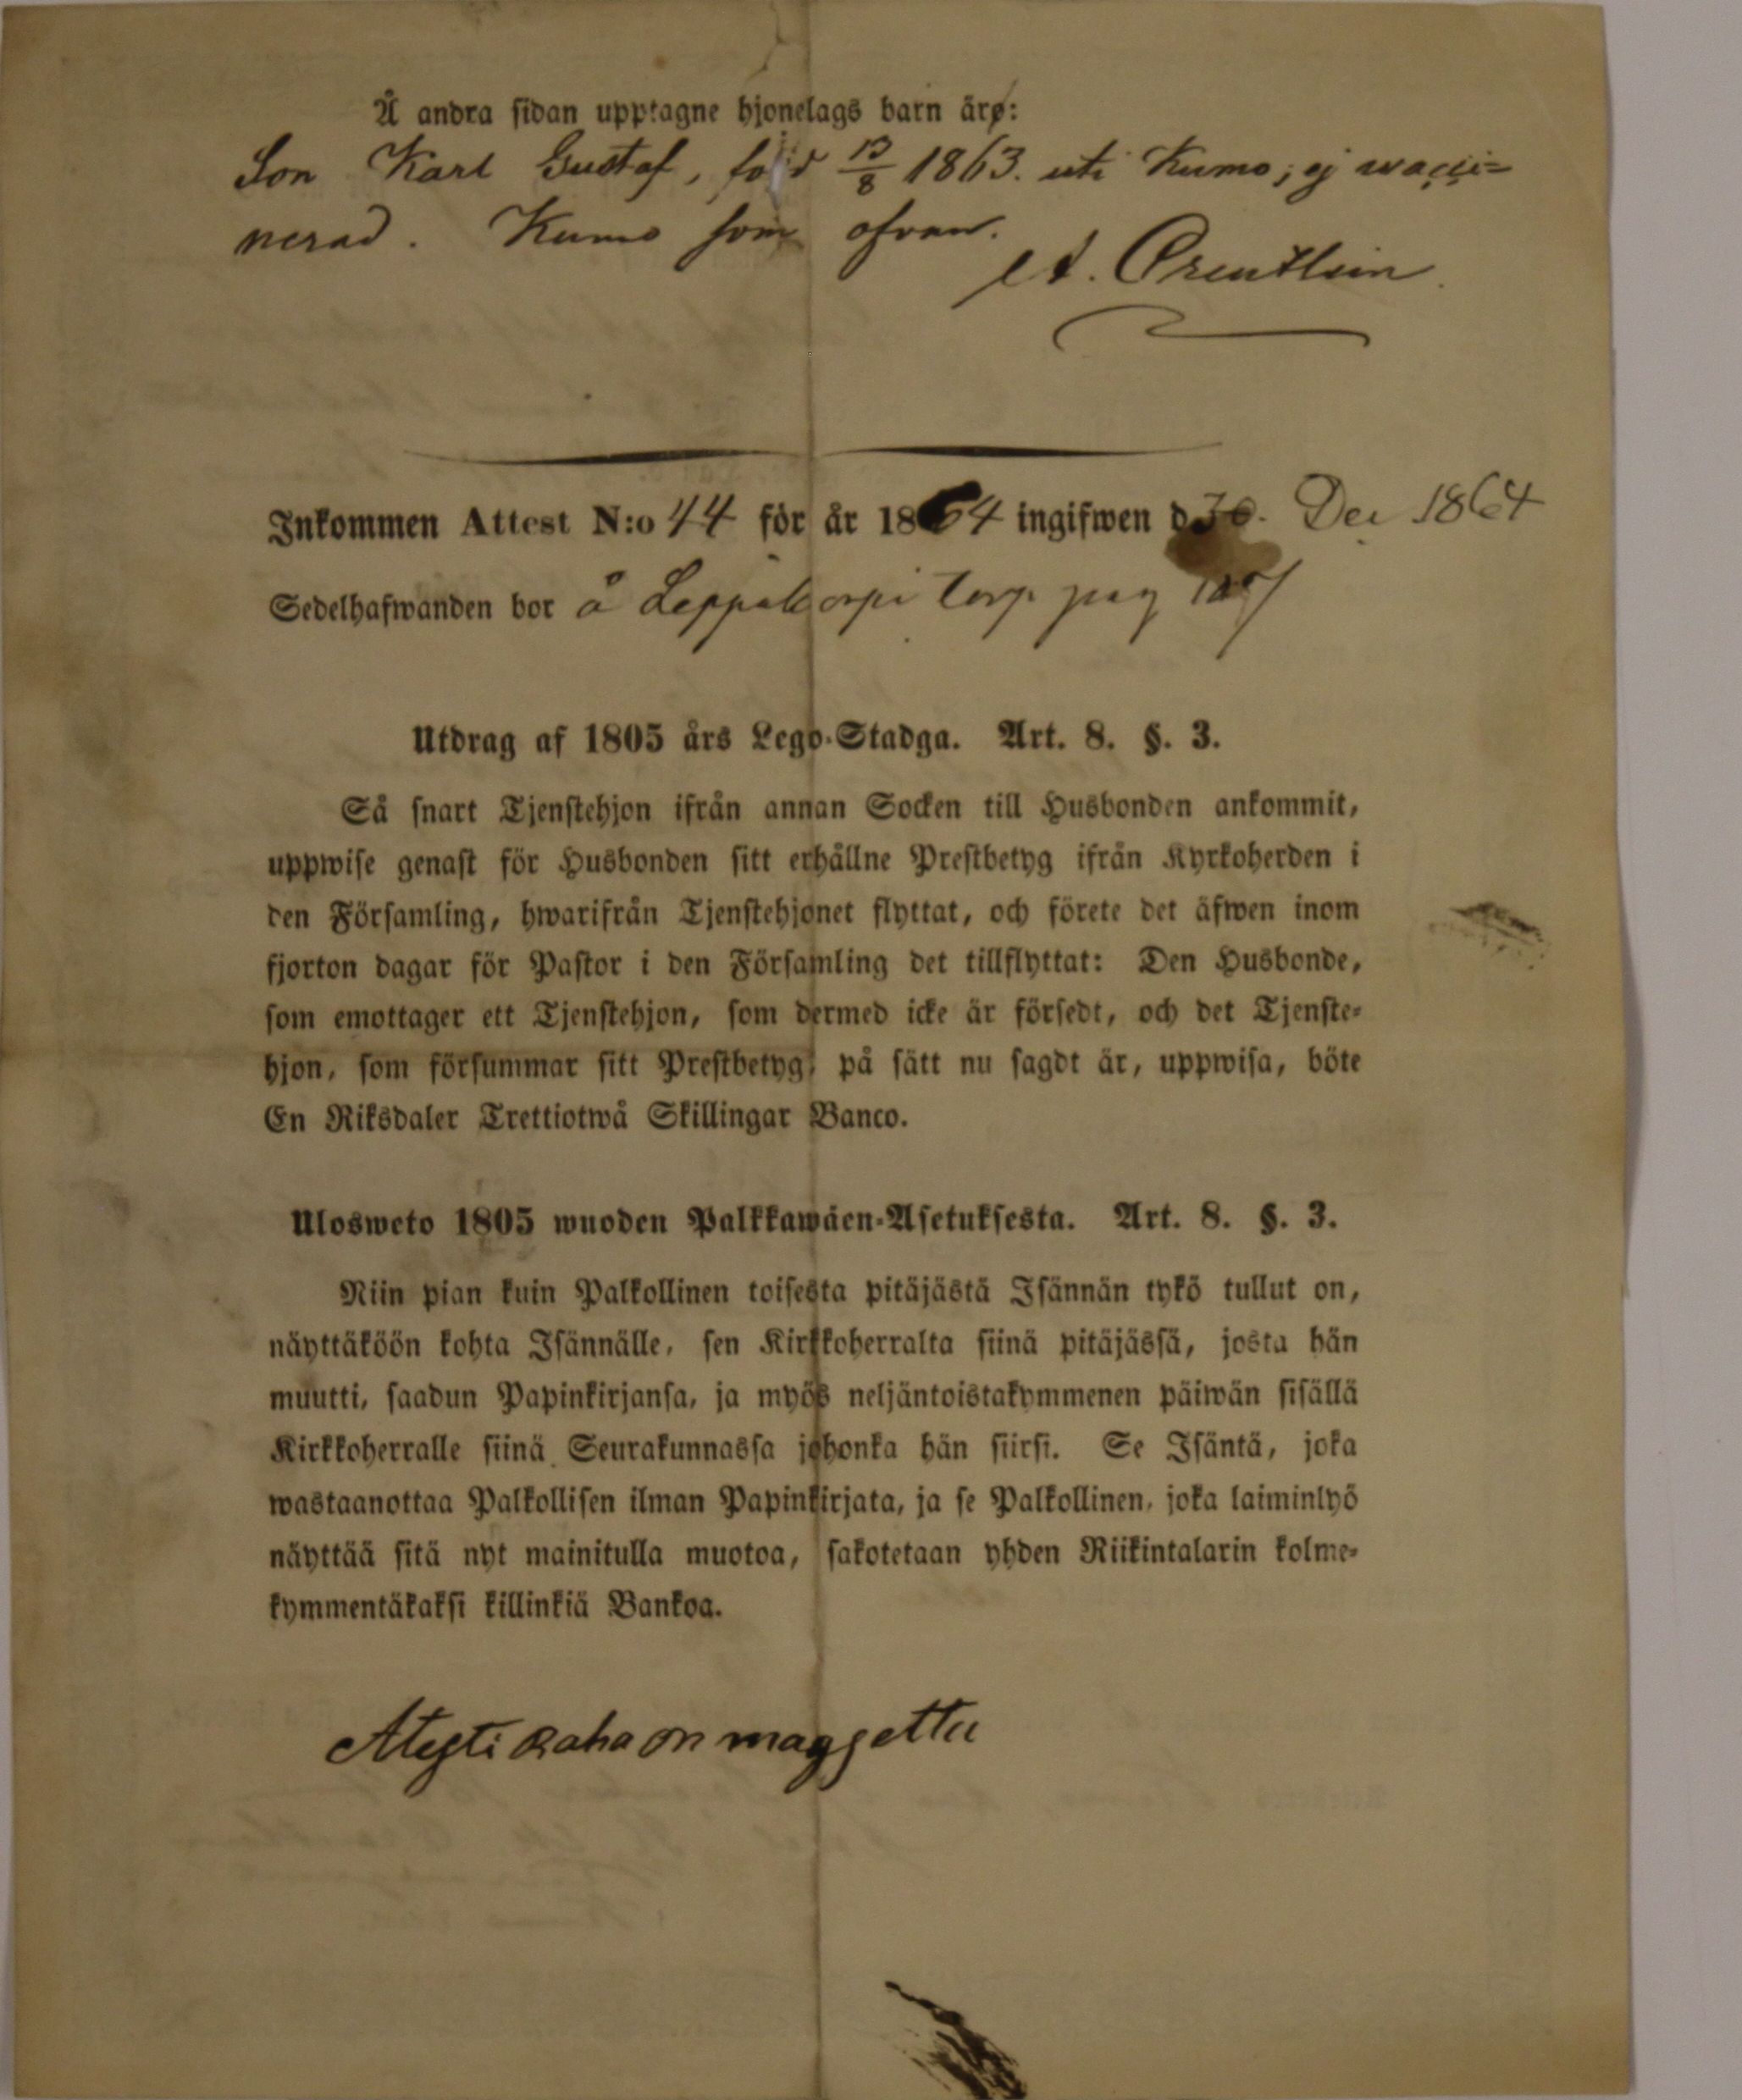 Å andra sidan upptagne hjonelags barn äro:
Son Karl Gustaf, född 13/8 1863. uti Kumo; ej wacci=
nerad. Kumo som ofvan.
A.
Inkommen Attest N:o 44 för år 1864 ingifwen d. 30. Dec 1864
Sedelhafwanden bor å Leppäkorpi torp pag 127
Utdrag af 1805 års Lego-Stadga. Art. 8. §. 3.
Så snart Tjenstehjon ifrån annan Socken till Husbonden ankommit,
uppwise genast för Husbonden sitt erhållne Prestbetyg ifrån Kyrkoherden i
den Församling, hwarifrån Tjenstehjonet flyttat, och förete det äfwen inom
fjorton dagar för Pastor i den Församling det tillflyttat: Den Husbonde,
som emottager ett Tjenstehjon, som dermed icke är försedt, och det Tjenste-
hjon, som försummar sitt Prestbetyg, på sätt nu sagdt är, uppwisa, böte
En Riksdaler Trettiotwå Skillingar Banco.
Ulosweto 1805 wuoden Palkkawäen-Asetuksesta. Art. 8. §. 3.
Niin pian kuin Palkollinen toisesta pitäjästä Isännän tykö tullut on,
näyttäköön kohta Isännälle, sen Kirkkoherralta siinä pitäjässä, josta hän
muutti, saadun Papinkirjansa, ja myös neljäntoistakymmenen päiwän sisällä
Kirkkoherralle siinä Seurakunnassa johonka hän siirsi. Se Isäntä, joka
wastaanottaa Palkollisen ilman Papinkirjata, ja se Palkollinen, joka laiminlyö
näyttää sitä nyt mainitulla muotoa, sakotetaan yhden Riikintalarin kolme-
kymmentäkaksi killinkiä Bankoa.
Atesti Raha on maggettu